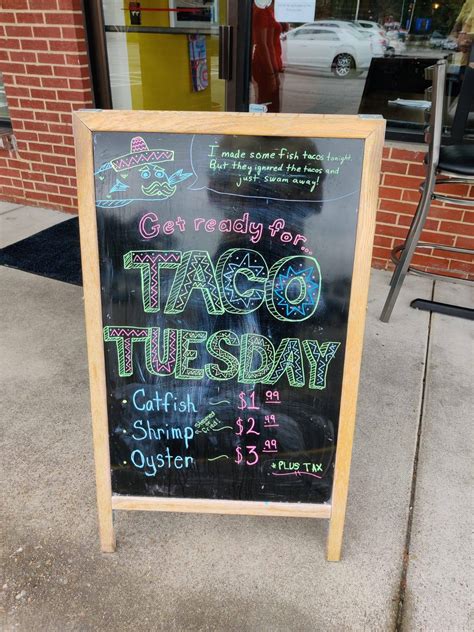 I made some fish tacos tonight.
But they ignored the tacos and
just swam away!
Get ready for...
TACO
TUESDAY
Catfish - $1.99
Shrimp - $2.49
Oyster - $3.99
*PLUS TAX